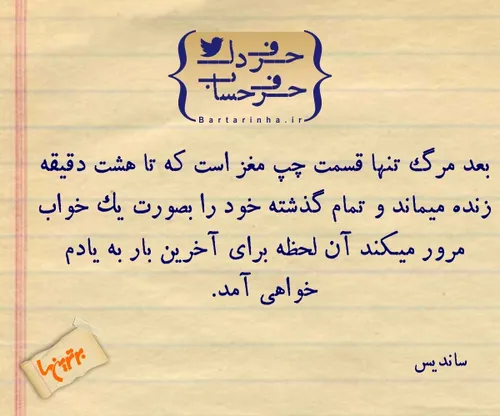 حرف دل
حرف حساب
Bartarinha.ir
بعد مرگ تنها قسمت چپ مغز است که تا هشت دقیقه
زنده میماند و تمام گذشته خود را بصورت یك خواب
مرور میکند آن لحظه برای آخرین بار به یادم
خواهی آمد.
ساندیس
برترینها